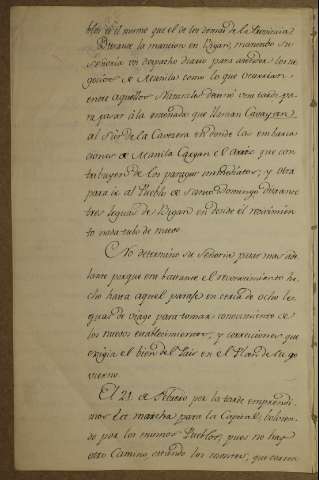 blos es el mismo que el de los demas de la Provincia
Durante la mancion en Bigan, manteniendo su
Señoria un despacho diario para atender los ne
gocios de Manila como lo que ocurrian
entre aquellos Naturales destinó una tarde pa
ra pasar á la ensenada que llaman Cavayan,
al Sur de la Cavecera en donde las embarca
ciones de Manila Cargan el Arroz que con
tribuyen de los parages inmediatos; y otra
para ir al Pueblo de Santo Domingo distante
tres leguas de Bigan en donde el recivimien
to nada tubo de nuevo.
No determinó su Señoria pasar mas ade
lante porque era bastante el reconocimiento he
cho hasta aquel parage en cerca de ocho le
guas de viage para tomar conocimiento de
los nuevos establecimientos, y correcciones que
exigia el bien del Pais en el Plan de su go
vierno.
El 21 de Febrero por la tarde emprendi
mos la marcha para la Capital, bolvien
do por los mismos Pueblos, pues no hay
otro Camino, estando los montes, que cercan